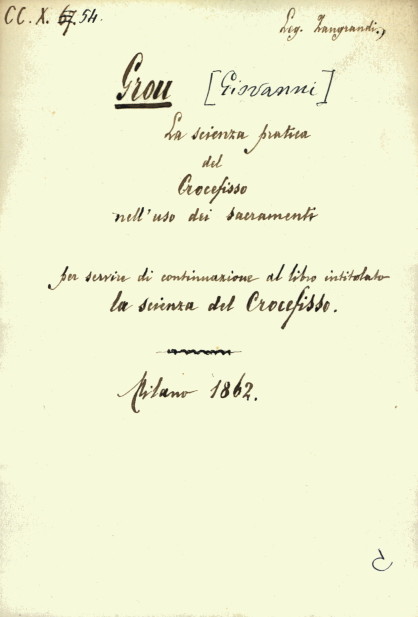 CC. X. 67. 54.
Leg. Zangrandi.
Grou [Giovanni]
La scienza pratica
del
Crocefisso
nell'uso dei sacramenti
per servire di continuazione al libro intitolato
la scienza del Crocefisso.
Milano 1862.